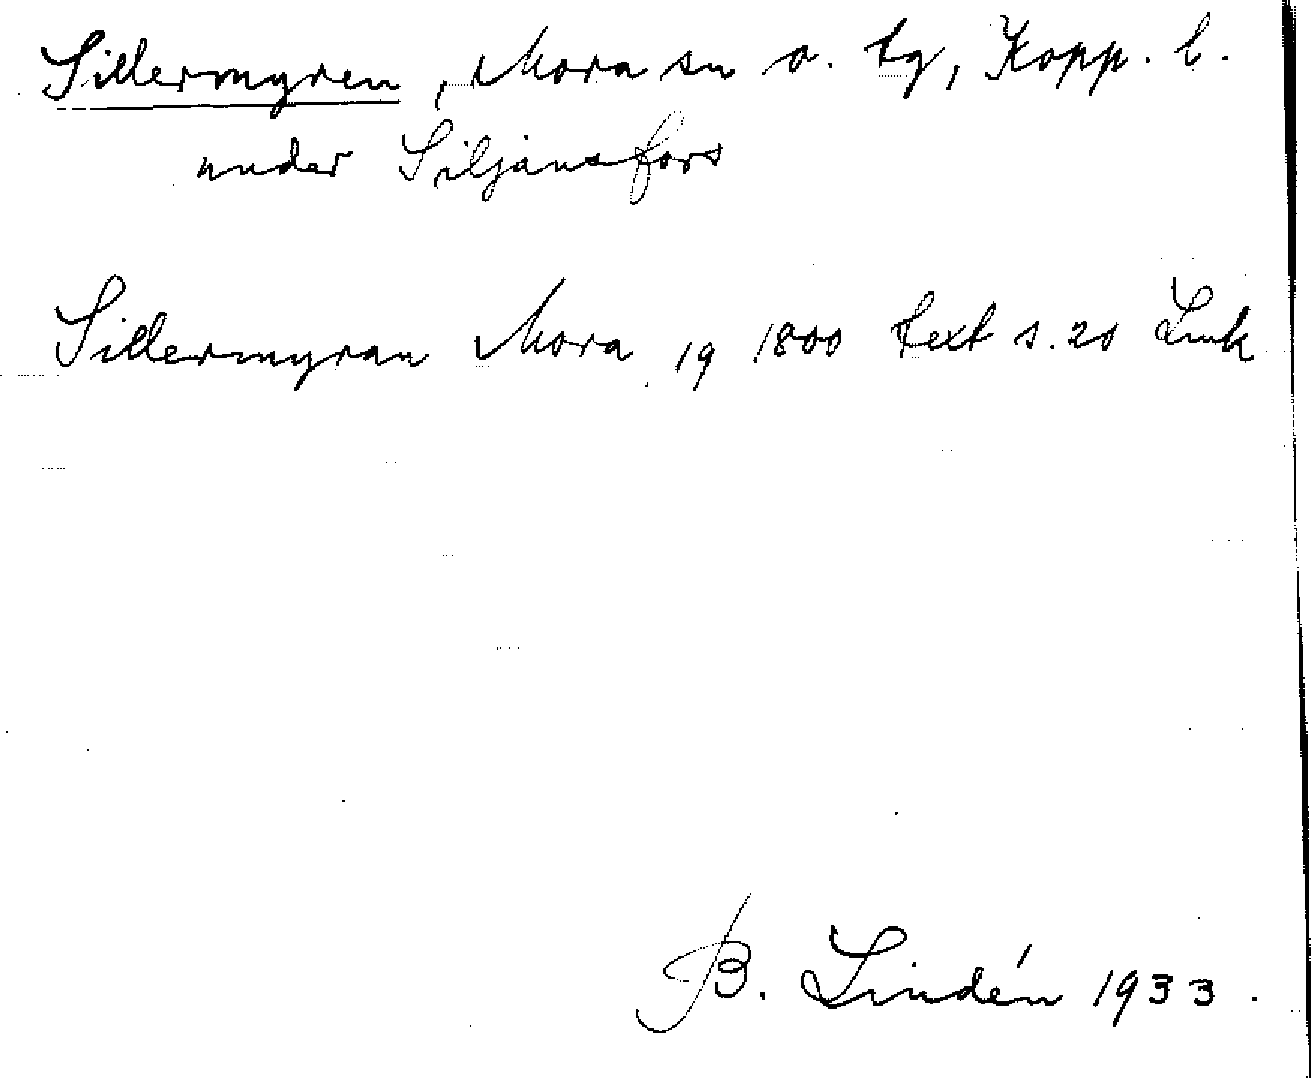 Sillermyren, Mora sn o. tg, Kopp. l.
under Siljansfors
Sillermyran Mora 19 1800 text s. 20 Lmk
B. Lindén 1933.